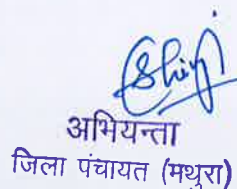 अभियन्ता
जिला पंचायत (मथुरा)